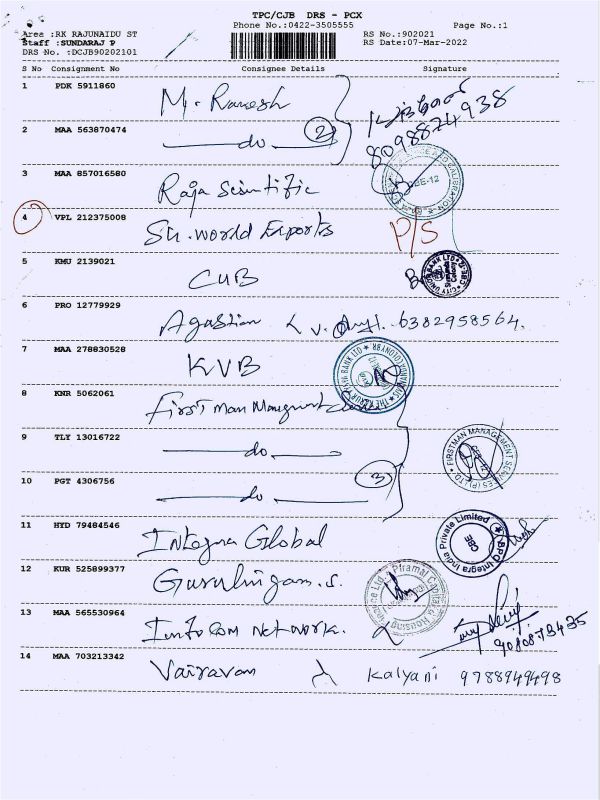 TPC/CJB DRS - PCX
Phone No.:0422-3505555 Page No.:1
Area :RK RAJUNAIDU ST RS No.:902021
Staff :SUNDARAJ P RS Date:07-Mar-2022
DRS No. :DCJB90202101
S No Consignment No Consignee Details Signature
1 PDK 5911860 M. Ramesh
8098874938
2 MAA 563870474 do 2
3 MAA 857016580 Raja Scientific
4 VPL 212375008 Sri. World Exports P/S
5 KMU 2139021 CUB
6 PRO 12779929 Agastian 6382958564.
7 MAA 278830528 KVB
8 KNR 5062061 First Man
9 TLY 13016722 do
10 PGT 4306756 do 3
FIRSTMAN MANAGEMENT SERVICES (P) LTD
11 HYD 79484546 Integra Global
BPO Integra India Private Limited
CBE
12 KUR 525899377 Gurulingam. S.
Piramal Capital & Housing Finance Ltd.
13 MAA 565530964 Infocom Network.
14 MAA 703213342 Vairavan Kalyani 9788949498